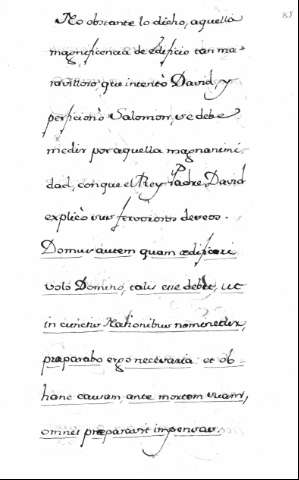 No obstante lo dicho, aquella
magnificencia de edificio tan ma-
ravilloso, que intentò David, y
perficionò Salomon, se debe
medir por aquella magnanimi
dad, con que el Rey Padre David
explicò sus fervorosos deseos.
Domus autem quam ædificari
volo Domino, talis esse debet, ut
in cunctis Nationibus nominetur,
præparabo ergo necessaria et ob
hanc causam, ante mortem suam,
omnes præparavit impensas.